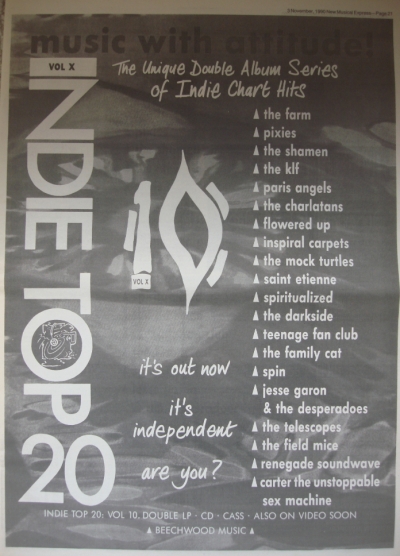 3 November, 1990 New Musical Express—Page 21
music with attitude!
VOL X
The Unique Double Album Series
of Indie Chart Hits
INDIE TOP 20
10
VOL X
▲ the farm
▲ pixies
▲ the shamen
▲ the klf
▲ paris angels
▲ the charlatans
▲ flowered up
▲ inspiral carpets
▲ the mock turtles
▲ saint etienne
▲ spiritualized
▲ the darkside
▲ teenage fan club
▲ the family cat
▲ spin
▲ jesse garon
& the desperadoes
▲ the telescopes
▲ the field mice
▲ renegade soundwave
▲ carter the unstoppable
sex machine
it's out now
it's
independent
are you?
INDIE TOP 20: VOL 10, DOUBLE LP · CD · CASS · ALSO ON VIDEO SOON
▲ BEECHWOOD MUSIC ▲